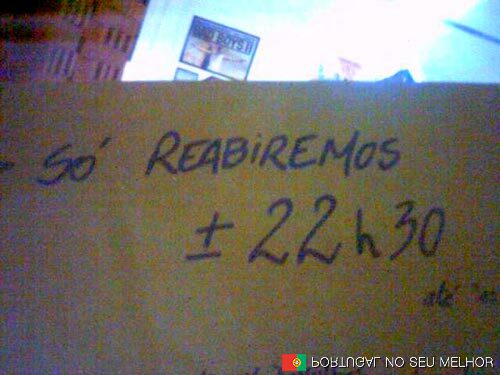 BAD BOYS II
- SÓ REABIREMOS
± 22h30
até
PORTUGAL NO SEU MELHOR